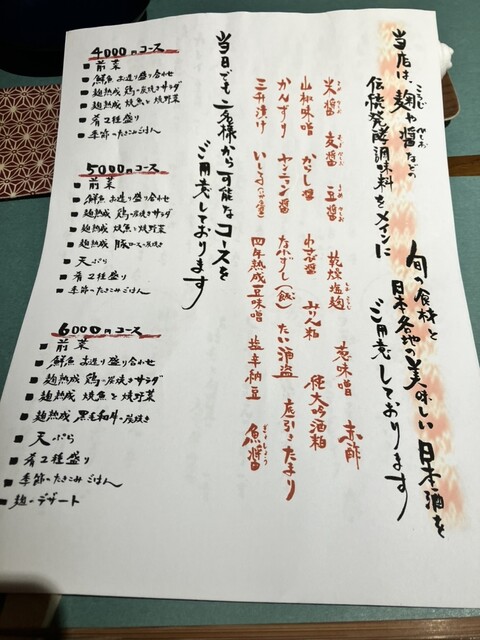 当店は、麹や醤などの
伝統発酵調味料をメインに
旬の食材と
日本各地の美味しい日本酒を
ご用意しております
米醤 麦醤 豆醤 乾燥塩麹 葱味噌 赤酢
山椒味噌 からし醤 わさび醤 みりん粕 純大吟醸粕
かんずり ヤンニン醤 なれずし(飯) たい酒盗 底引きたまり
三升漬け いしり(いか醤) 四年熟成豆味噌 塩辛納豆 魚醤
当日でも二名様から可能なコースを
ご用意しております
4000円コース
前菜
鮮魚お造り盛り合わせ
麹熟成 鶏の炭焼きサラダ
麹熟成 焼魚と焼野菜
肴2種盛り
季節のたきこみごはん
5000円コース
前菜
鮮魚お造り盛り合わせ
麹熟成 鶏の炭焼きサラダ
麹熟成 焼魚と焼野菜
麹熟成 豚ロース炭焼き
天ぷら
肴2種盛り
季節のたきこみごはん
6000円コース
前菜
鮮魚お造り盛り合わせ
麹熟成 鶏の炭焼きサラダ
麹熟成 焼魚と焼野菜
麹熟成 黒毛和牛の炭焼き
天ぷら
肴2種盛り
季節のたきこみごはん
麹のデザート